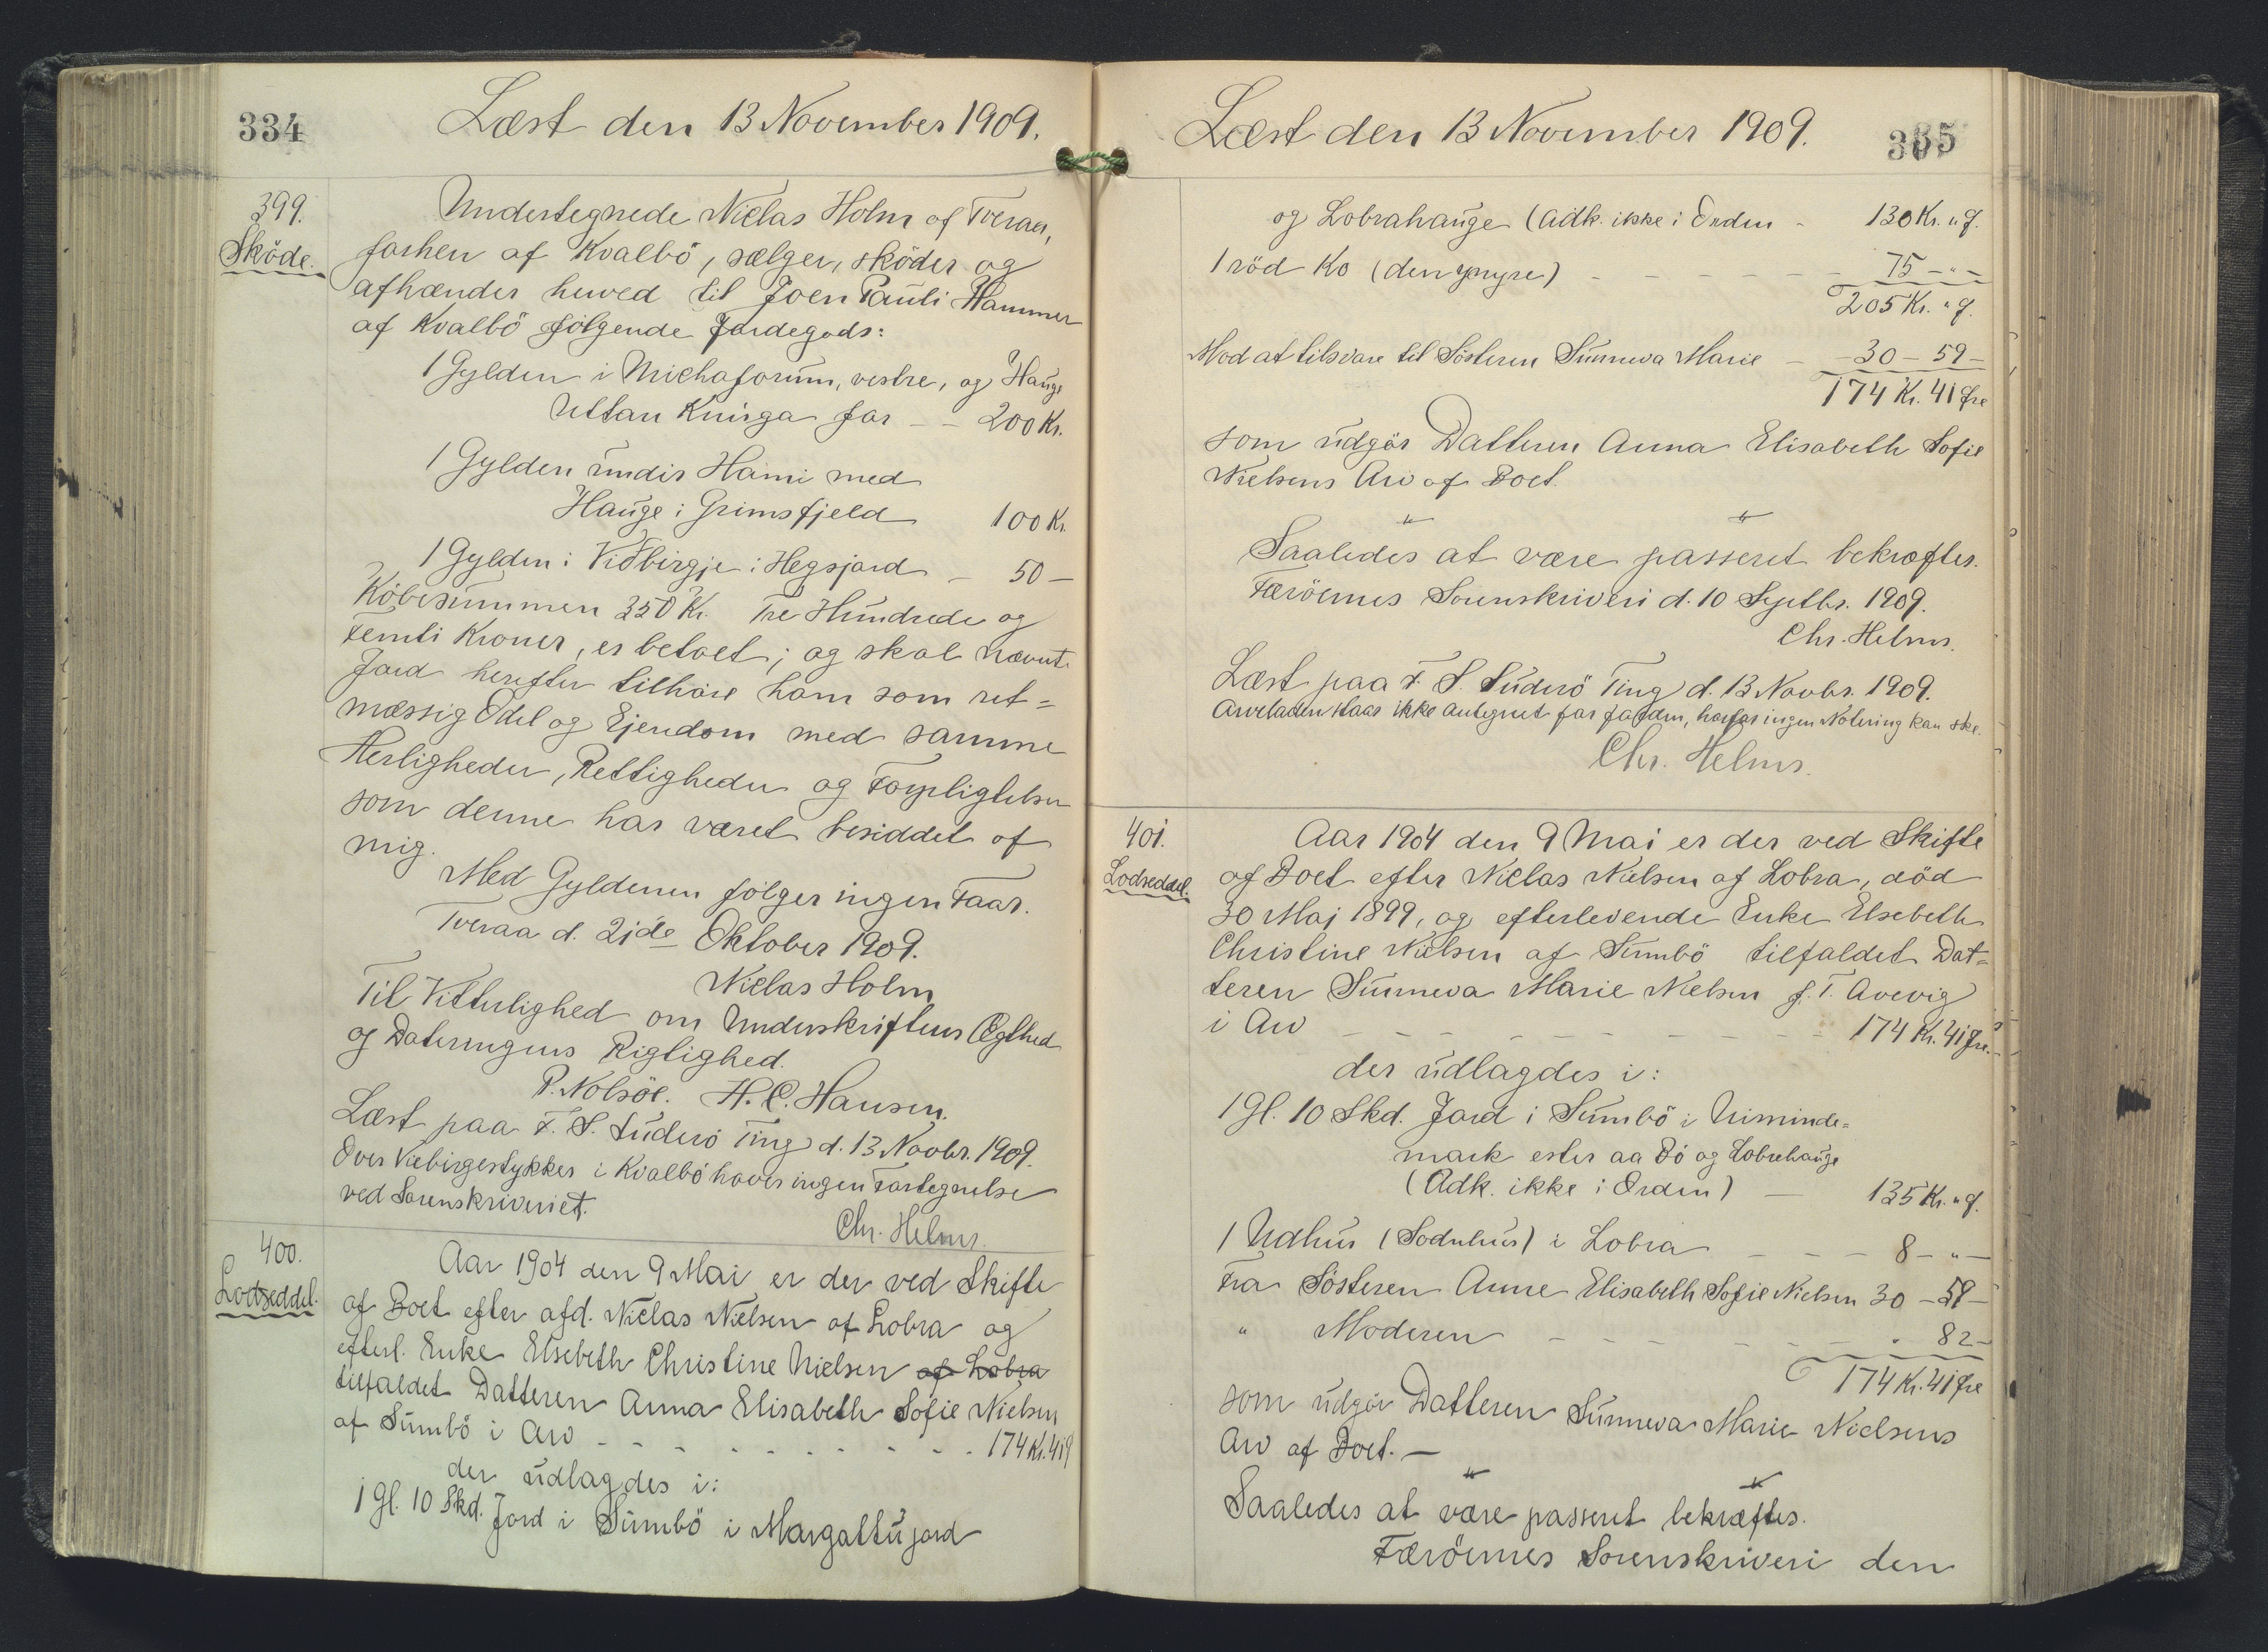 334
Læst den 13 November 1909.
399.
Sköde.
Undertegnede Niclas Holm af Tveraa,
forhen af Kvalbö, sælger, sköder og
afhænder herved til Joen Pauli Hammer
af Kvalbö følgende Jordegods:
1 Gylden i Michaforum, vestre, og Hauge
Uttan Knúga for - - 200 Kr.
1 Gylden undir Hami med
Hauge i Grimsfjeld 100 Kr.
1 Gylden i Viðbirgje i Hegsjord - 50 -
Köbesummen 350 Kr. Tre Hundrede og
Femti Kroner, er betalt; og skal nævnte
Jord herefter tilhöre ham som ret=
mæssig Odel og Ejendom med samme
Herligheder, Rettigheder og Forpligtelser
som denne har været besiddet af
mig.
Med Gyldenen følger ingen Faar.
Tveraa d. 21de Oktober 1909.
Niclas Holm
Til Vitterlighed om Underskriftens Ægthed
og Dateringens Rigtighed.
P. Nolsöe. H. C. Hansen.
Læst paa F. S. Suderö Ting d. 13 Novbr. 1909.
Over Viebirgestykker i Kvalbö haves ingen Fortegnelse
ved Sorenskriveriet.
Chr. Helms.
400.
Lodseddel.
Aar 1904 den 9 Mai er der ved Skifte
af Boet efter afd. Niclas Nielsen af Lobra og
efterl. Enke Elsebeth Christine Nielsen af Lobra
tilfaldet Datteren Anna Elisabeth Sofie Nielsen
af Sumbö i Arv - - - - - - - - - 174 Kr. 41 Ø
der udlagdes i:
1 Gl. 10 Skd. Jord i Sumbö i Margattujord
Læst den 13 November 1909.
335
og Lobrahauge (Adk. ikke i Orden - 130 Kr. " Ø.
1 röd Ko (den yngre) - - - - - - 75 - " -
205 Kr. " Ø.
Mod at tilsvare til Søsteren Sunneva Marie - - 30 - 59 -
174 Kr. 41 Øre
som udgör Datteren Anna Elisabeth Sofie
Nielsens Arv af Boet.
Saaledes at være passeret bekræftes.
Færöernes Sorenskriveri d. 10 Septbr. 1909.
Chr. Helms.
Læst paa F. S. Suderö Ting d. 13 Novbr. 1909.
Arveladeren staar ikke antegnet for Jorden, hvorfor ingen Notering kan ske.
Chr. Helms.
401.
Lodseddel.
Aar 1904 den 9 Mai er der ved Skifte
af Boet efter Niclas Nielsen af Lobra, död
30 Maj 1899, og efterlevende Enke Elsebeth
Christine Nielsen af Sumbö tilfaldet Dat=
teren Sunneva Marie Nielsen f. T. Arevig
i Arv - - - - - - - - 174 Kr. 41 Øre.
der udlagdes i:
1 Gl. 10 Skd. Jord i Sumbö i Uiminde=
mark ester aa Bö og Lobrehauge
(Adk. ikke i Orden) - 135 Kr. " Ø.
1 Udhus (Sodnhus) i Lobra - - - 8 - " -
Fra Søsteren Anne Elisabeth Sofie Nielsen 30 - 59 -
" Moderen - - - - - - " 82 -
174 Kr. 41 Øre
som udgör Datteren Sunneva Marie Nielsens
Arv af Boet. -
Saaledes at være passeret bekræftes.
Færöernes Sorenskriveri den